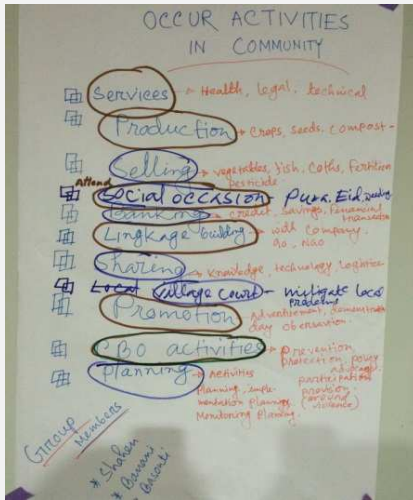 OCCUR ACTIVITIES
IN COMMUNITY
Services → Health, legal, technical
Production → Crops, seeds, compost-
Selling → vegetables, fish, Coths, Fertilizer
Pesticide
Attend
Social occasion Puza, Eid, wedding
Banking → credit, savings, Financial
transaction
Lingkage building → with Company,
GO, NGO
Sharing → knowledge, technology, Logistics
Local village court - mitigate local
Problems
Promotion → advertisement, demonstration
day observation.
CBO activities → prevention
protection, policy
advocacy
participation
provision
(around
violence)
Planning → Activities
Planning, imple-
mentation planning,
Monitoring Planning.
Group
Members
* Shahen
* Banani